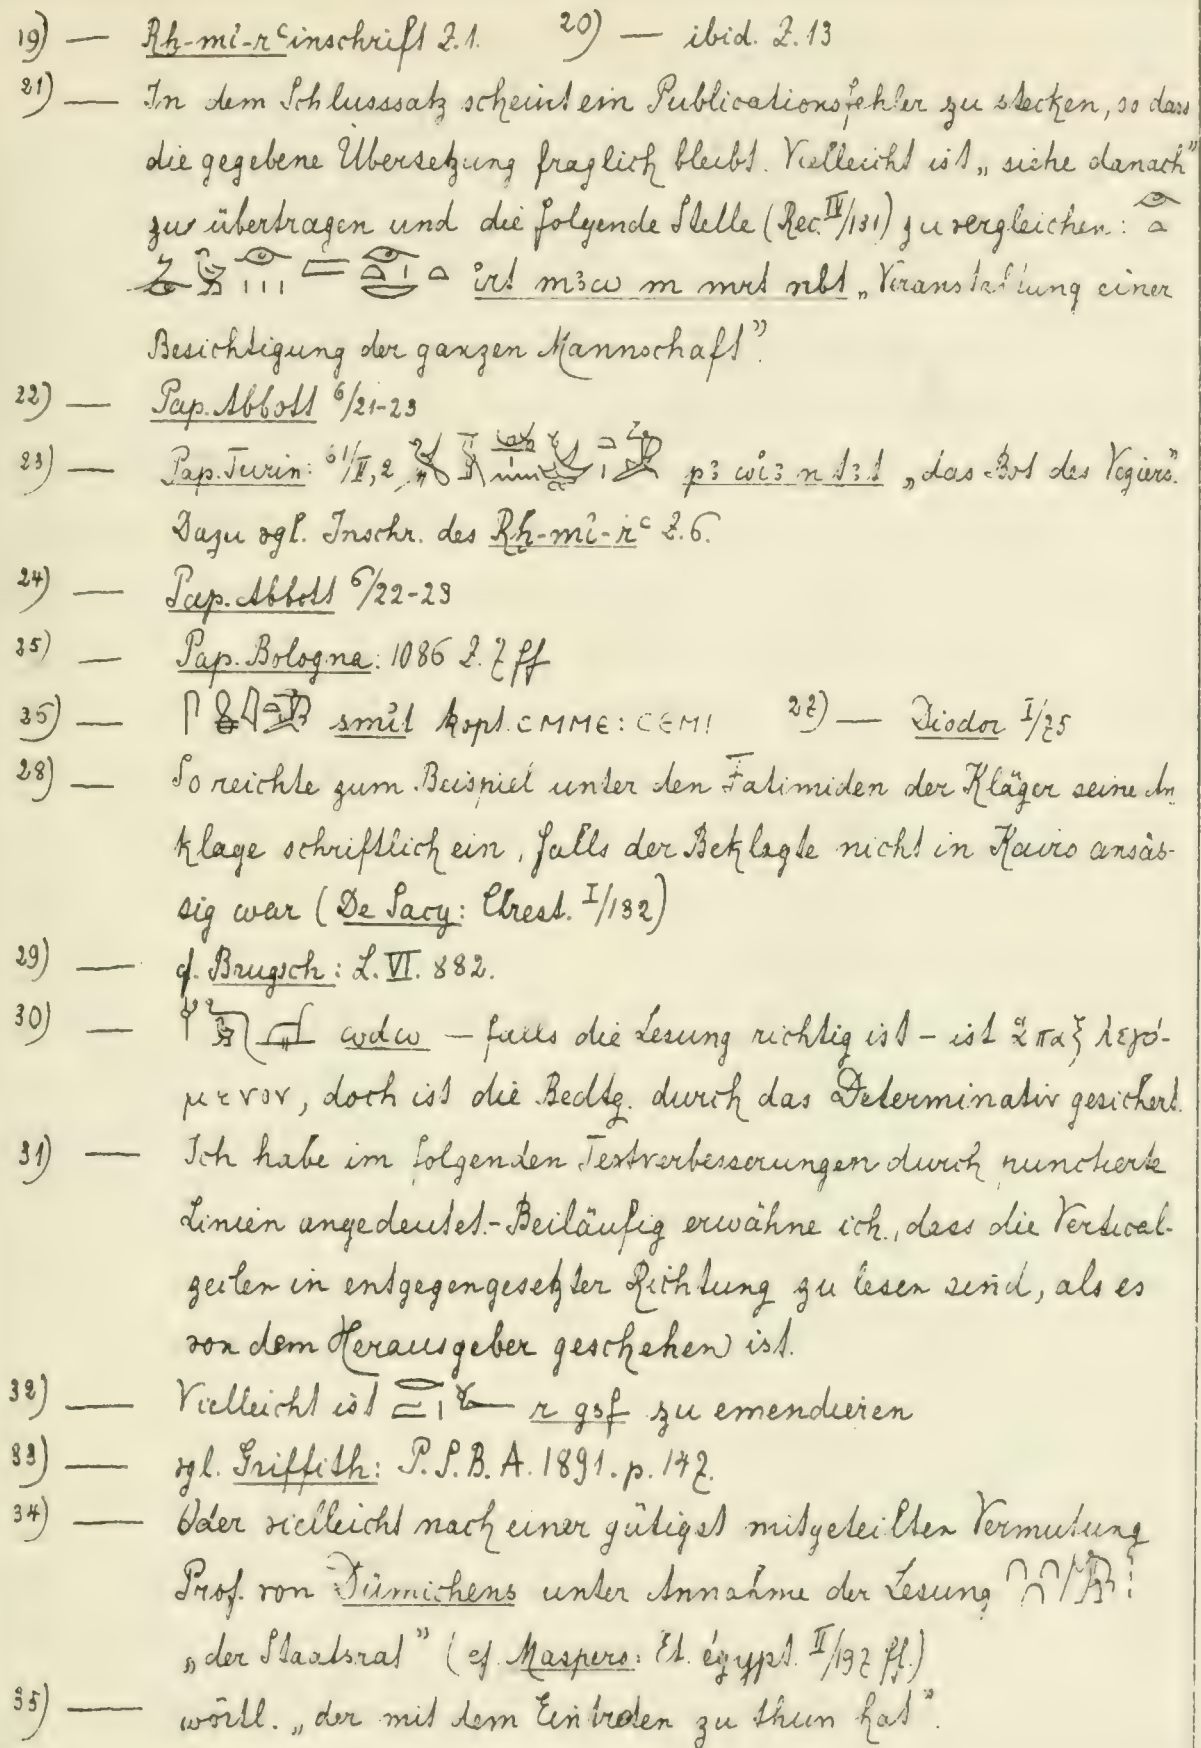 19) — Rh-mi-rᶜinschrift Z.1. 20) — ibid. Z.13
21) — In dem Schlusssatz scheint ein Publicationsfehler zu stecken, so dass
die gegebene Übersetzung fraglich bleibt. Vielleicht ist „siehe danach"
zu übertragen und die folgende Stelle (Rec. IV/131) zu vergleichen:
irt m3w m mrt nbt „Veranstaltung einer
Besichtigung der ganzen Mannschaft".
22) — Pap. Abbott 6/21-23
23) — Pap. Turin: 61/II,2 p3 wi3 n t3t „das Bot des Veziers".
Dazu vgl. Inschr. des Rh-mi-rᶜ Z.6.
24) — Pap. Abbott 6/22-23
25) — Pap. Bologna: 1086 Z. 7 ff
35) — smit kopt. CMME: CEMI 27) — Diodor I/75
28) — So reichte zum Beispiel unter den Fatimiden der Kläger seine An
klage schriftlich ein, falls der Beklagte nicht in Kairo ansäs-
sig war (De Sacy: Chrest. I/132)
29) — cf. Brugsch: L. VI. 882.
30) — wdw — falls die Lesung richtig ist – ist ἅπαξ λεγό-
μενον, doch ist die Bedtg. durch das Determinativ gesichert.
31) — Ich habe im folgenden Textverbesserungen durch punctierte
Linien angedeutet.- Beiläufig erwähne ich, dass die Vertical-
zeilen in entgegengesetzter Richtung zu lesen sind, als es
von dem Herausgeber geschehen ist.
32) — Vielleicht ist r gsf zu emendieren
33) — vgl. Griffith: P.S.B.A. 1891. p. 147.
34) — Oder vielleicht nach einer gütigst mitgeteilten Vermutung
Prof. von Dümichens unter Annahme der Lesung
„der Staatsrat" (cf. Maspero: Et. égypt. II/197 ff.)
35) — wörtl. „der mit dem Eintreten zu thun hat".